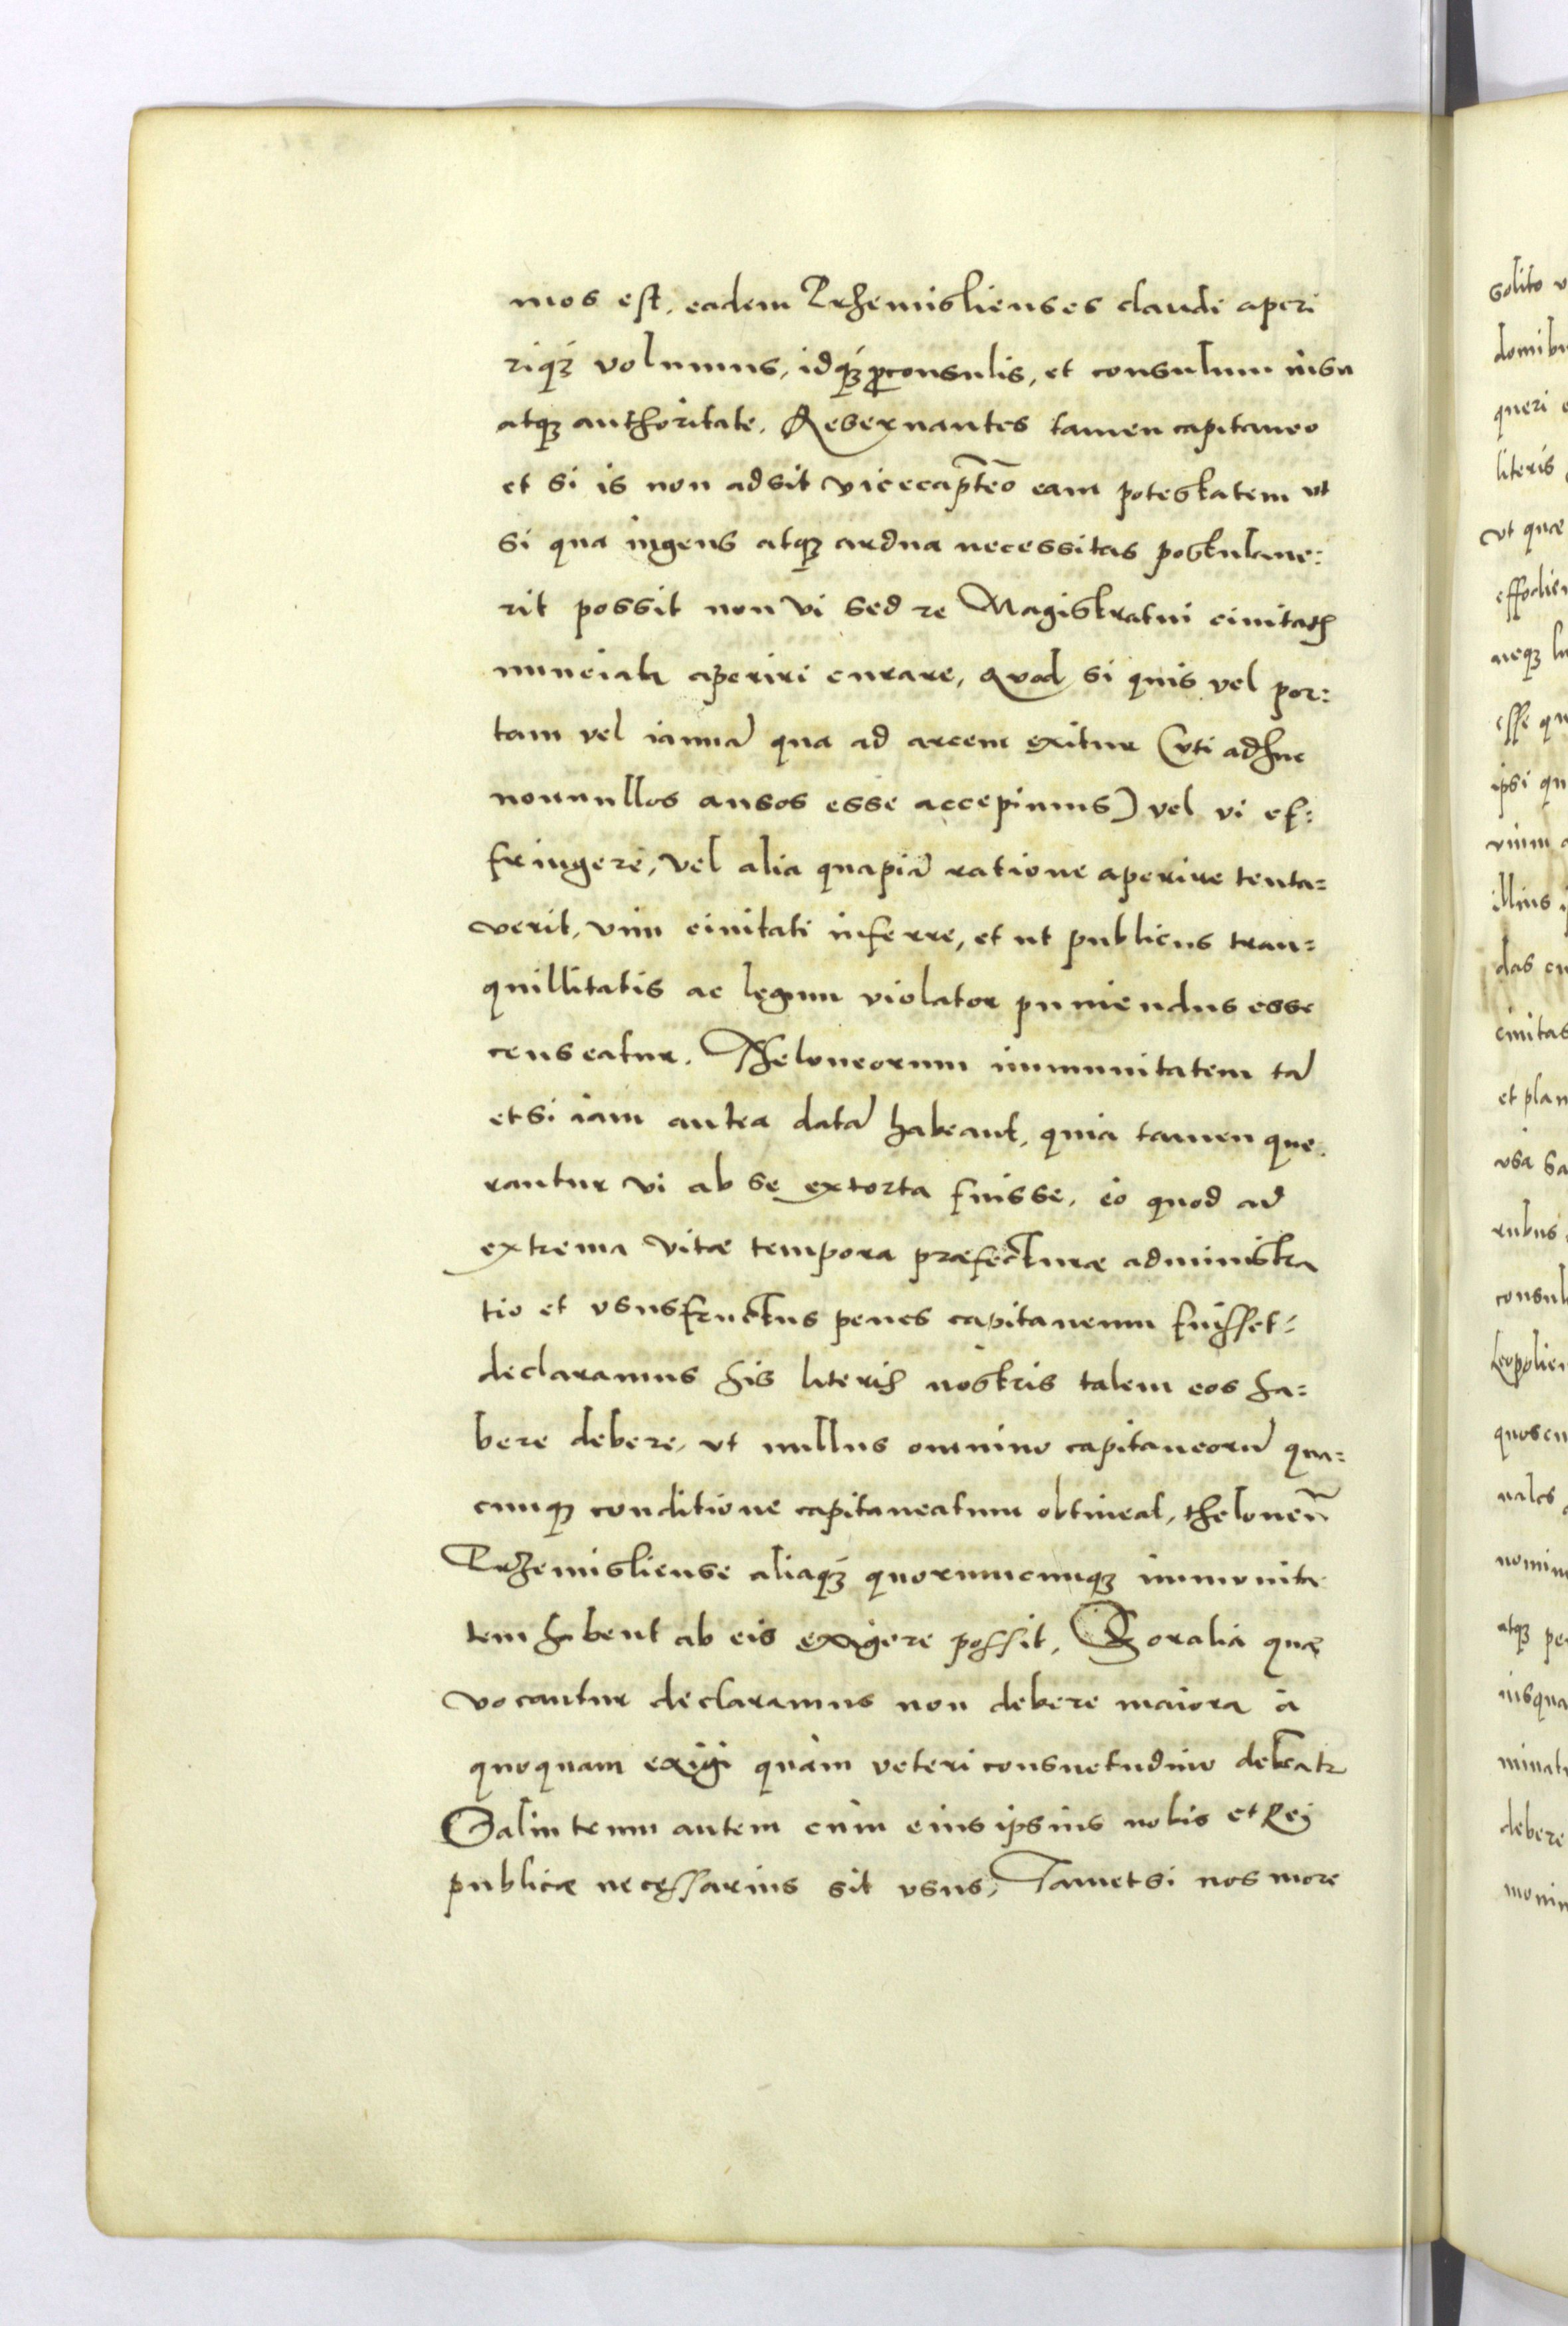 mos est, eadem Przemislienses claudi aperi
riq́ꝫ volumus, idq́ꝫ proconsulis, et consulum iussu
atqꝫ authoritate. Reservantes tamen capitaneo
et si is non adsit vicecaptēo eam potestatem ut
si qua ingens atqꝫ ardua necessitas postulaue:
rit possit non vi sed re Magistratui ciuitatis
nunciata aperiri curare, quod si quis vel por:
tam vel ianuā qua ad arcem exitur (uti adhuc
nonnullos ausos esse accepimus) vel vi ef:
fringere, vel alia quapiā ratione aperire tenta=
verit, vim ciuitati inferre, et ut publicus tran=
quillitatis ac legum violator puniendus esse
censeatur. Theloneorum immunitatem tā
etsi iam antea datā habeant, quia tamen que
rantur vi ab se extorta fuisse, eo quod ad
extrema vitæ tempora præfecturæ administra
tio et ususfructus penes capitaneum fuisset:
declaramus his literis nostris talem eos ha=
bere debere, ut nullus omnino capitaneorū qua=
cunqꝫ conditione capitaneatum obtineat, theloneū
Przemisliense aliaq́ꝫ quorumcunqꝫ immunita
tem habent ab eis exigere possit. Foralia quæ
vocantur declaramus non debere maiora à
quoquam exigi quàm veteri consuetudine debeatr
Salin trum autem cùm eius ipsius nobis et Rei
publicæ necessarius sit usus, Tametsi nos more
solito v
domibu
queri e
literis
ut quæ
effodien
neqꝫ lu
esse qu
ipsi qu
illius i
das cu
ciuitas
et plan
usa sa
rubus
consul
Leopolien
quoscu
nales
nomine
atqꝫ pe
usqua
minat
debere